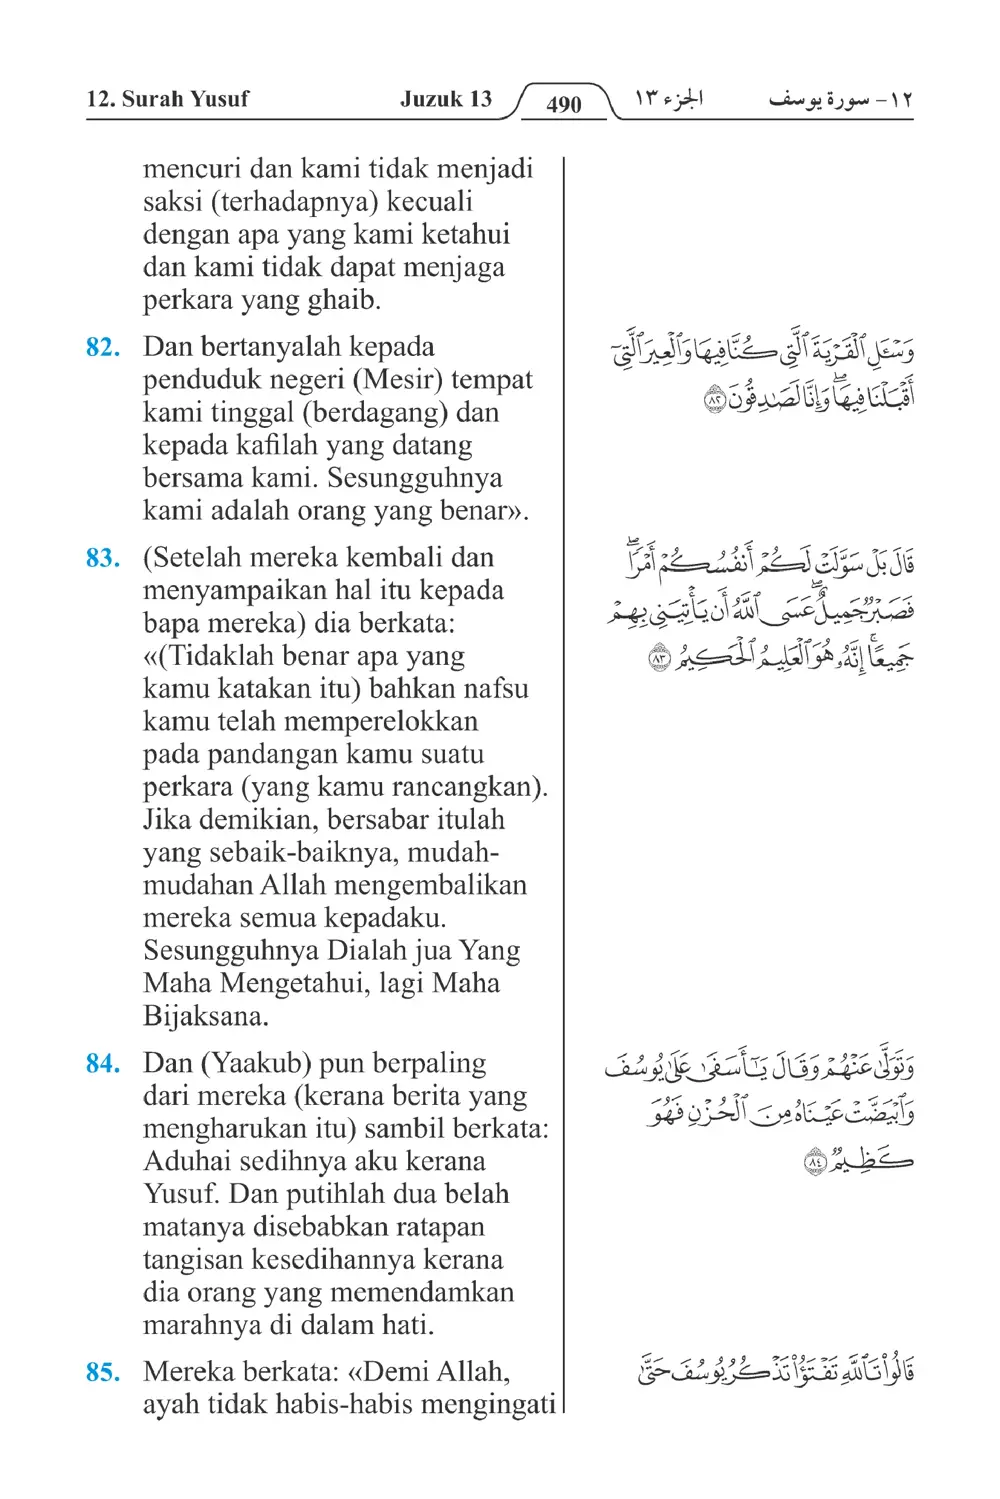 12. Surah Yusuf Juzuk 13 490 الجزء ١٣ ١٢- سورة يوسف
mencuri dan kami tidak menjadi
saksi (terhadapnya) kecuali
dengan apa yang kami ketahui
dan kami tidak dapat menjaga
perkara yang ghaib.
82. Dan bertanyalah kepada
penduduk negeri (Mesir) tempat
kami tinggal (berdagang) dan
kepada kafilah yang datang
bersama kami. Sesungguhnya
kami adalah orang yang benar».
وَسْـَٔلِ ٱلْقَرْيَةَ ٱلَّتِى كُنَّا فِيهَا وَٱلْعِيرَ ٱلَّتِىٓ
أَقْبَلْنَا فِيهَا ۖ وَإِنَّا لَصَـٰدِقُونَ ٨٢
83. (Setelah mereka kembali dan
menyampaikan hal itu kepada
bapa mereka) dia berkata:
«(Tidaklah benar apa yang
kamu katakan itu) bahkan nafsu
kamu telah memperelokkan
pada pandangan kamu suatu
perkara (yang kamu rancangkan).
Jika demikian, bersabar itulah
yang sebaik-baiknya, mudah-
mudahan Allah mengembalikan
mereka semua kepadaku.
Sesungguhnya Dialah jua Yang
Maha Mengetahui, lagi Maha
Bijaksana.
قَالَ بَلْ سَوَّلَتْ لَكُمْ أَنفُسُكُمْ أَمْرًا ۖ
فَصَبْرٌ جَمِيلٌ ۖ عَسَى ٱللَّهُ أَن يَأْتِيَنِى بِهِمْ
جَمِيعًا ۚ إِنَّهُۥ هُوَ ٱلْعَلِيمُ ٱلْحَكِيمُ ٨٣
84. Dan (Yaakub) pun berpaling
dari mereka (kerana berita yang
mengharukan itu) sambil berkata:
Aduhai sedihnya aku kerana
Yusuf. Dan putihlah dua belah
matanya disebabkan ratapan
tangisan kesedihannya kerana
dia orang yang memendamkan
marahnya di dalam hati.
وَتَوَلَّىٰ عَنْهُمْ وَقَالَ يَـٰٓأَسَفَىٰ عَلَىٰ يُوسُفَ
وَٱبْيَضَّتْ عَيْنَاهُ مِنَ ٱلْحُزْنِ فَهُوَ
كَظِيمٌ ٨٤
85. Mereka berkata: «Demi Allah,
ayah tidak habis-habis mengingati
قَالُوا۟ تَٱللَّهِ تَفْتَؤُا۟ تَذْكُرُ يُوسُفَ حَتَّىٰ